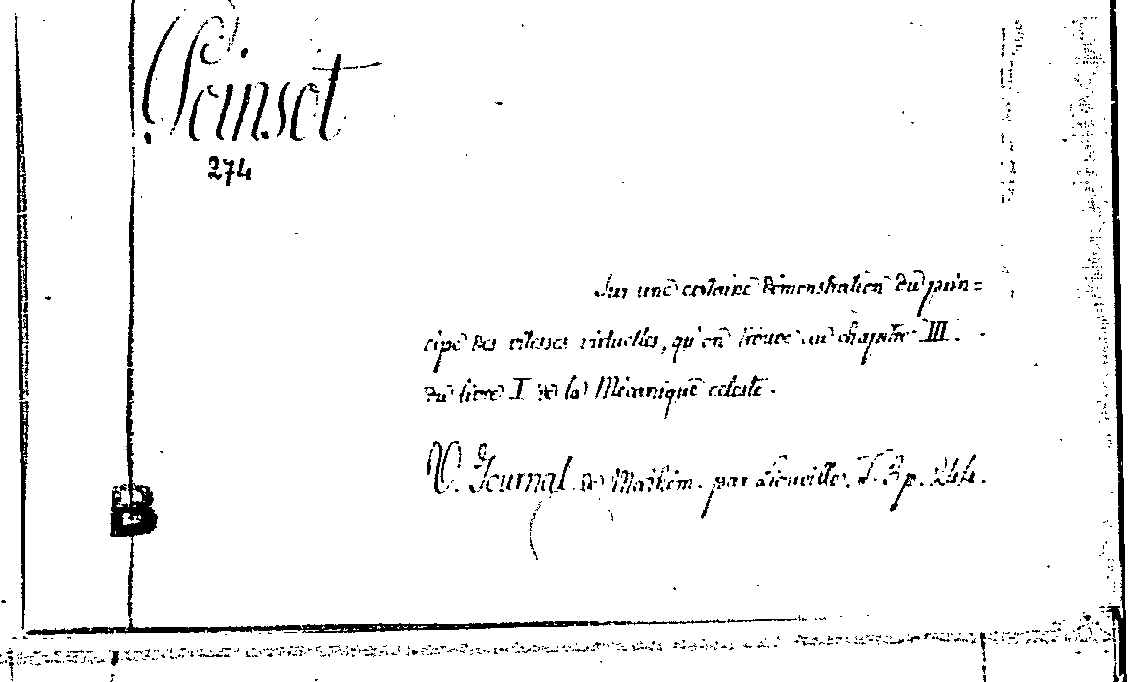 Poinsot
274
Sur une certaine démonstration du prin=
cipe des vitesses virtuelles, qu'on trouve au chapitre III.
du livre I de la Mécanique céleste.
V. Journal de Mathém. par Liouville. T. 3 p. 244.
B